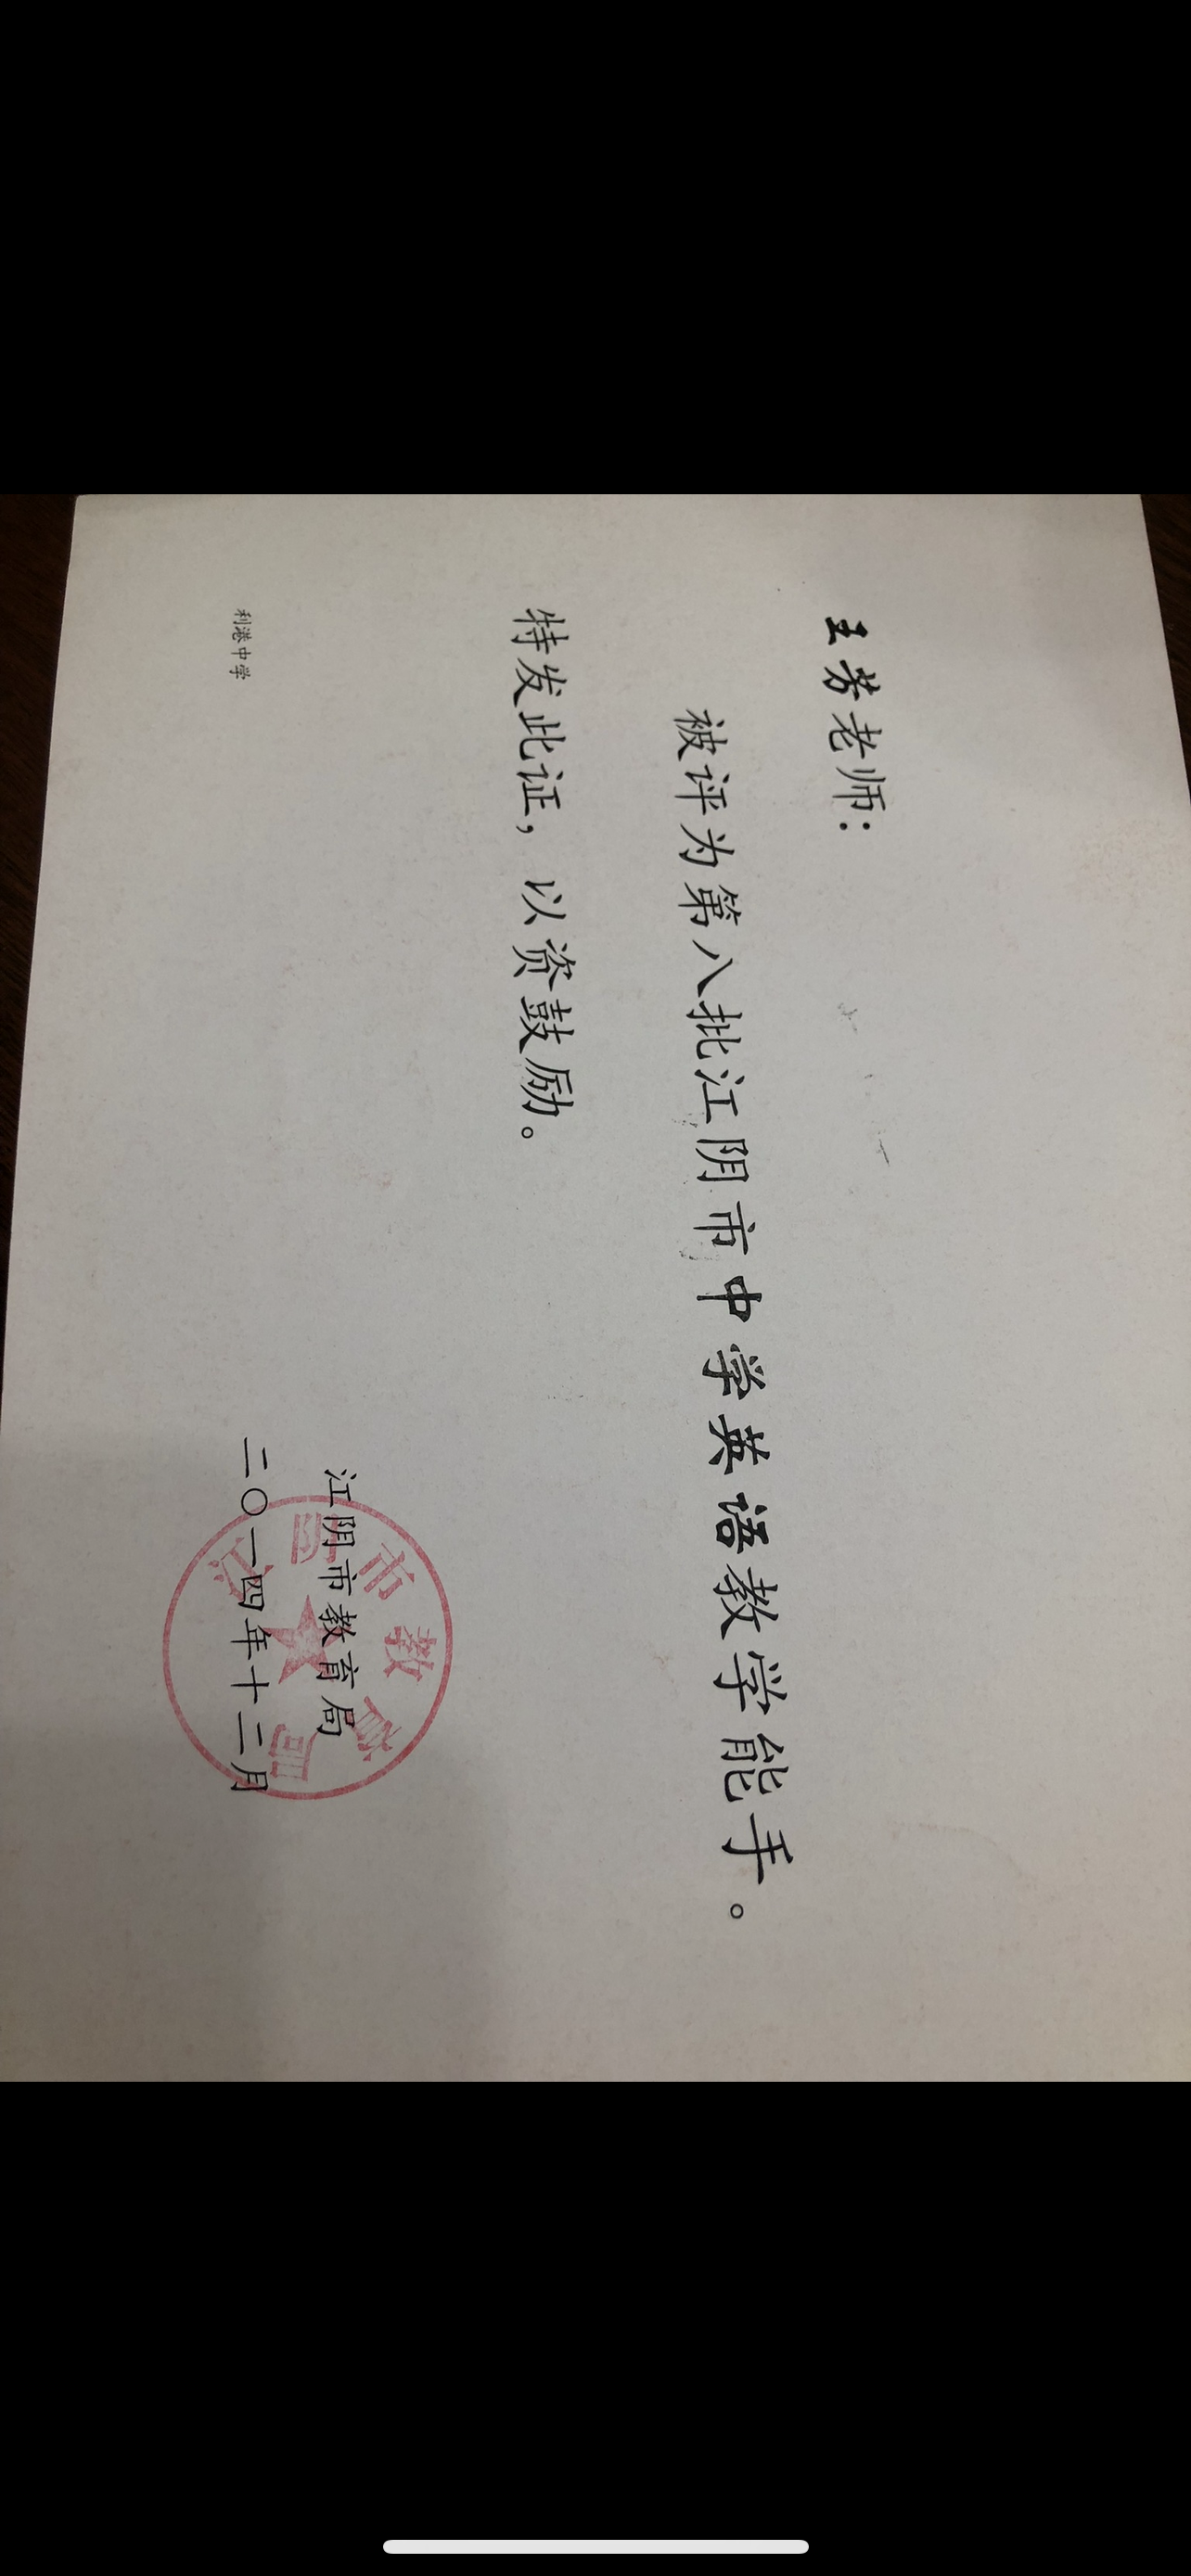 王芳老师：
被评为第八批江阴市中学英语教学能手。
特发此证，以资鼓励。
江阴市教育局
二〇一四年十二月
利港中学
江阴市教育局